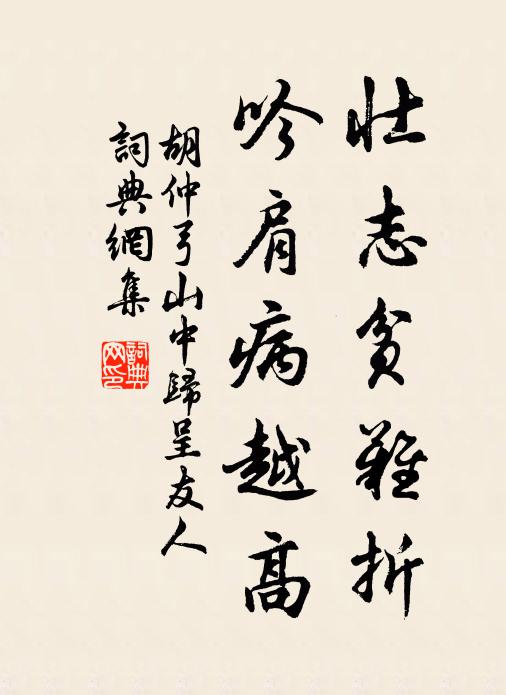 壯志貧難折
吟肩病越高
胡仲弓山中歸呈友人
詞典網集
詞典
网印